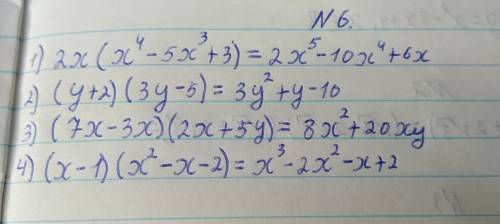 N 6.
1) 2x(x⁴-5x³+3)=2x⁵-10x⁴+6x
2) (y+2)(3y-5)=3y²+y-10
3) (7x-3x)(2x+5y)=8x²+20xy
4) (x-1)(x²-x-2)=x³-2x²-x+2